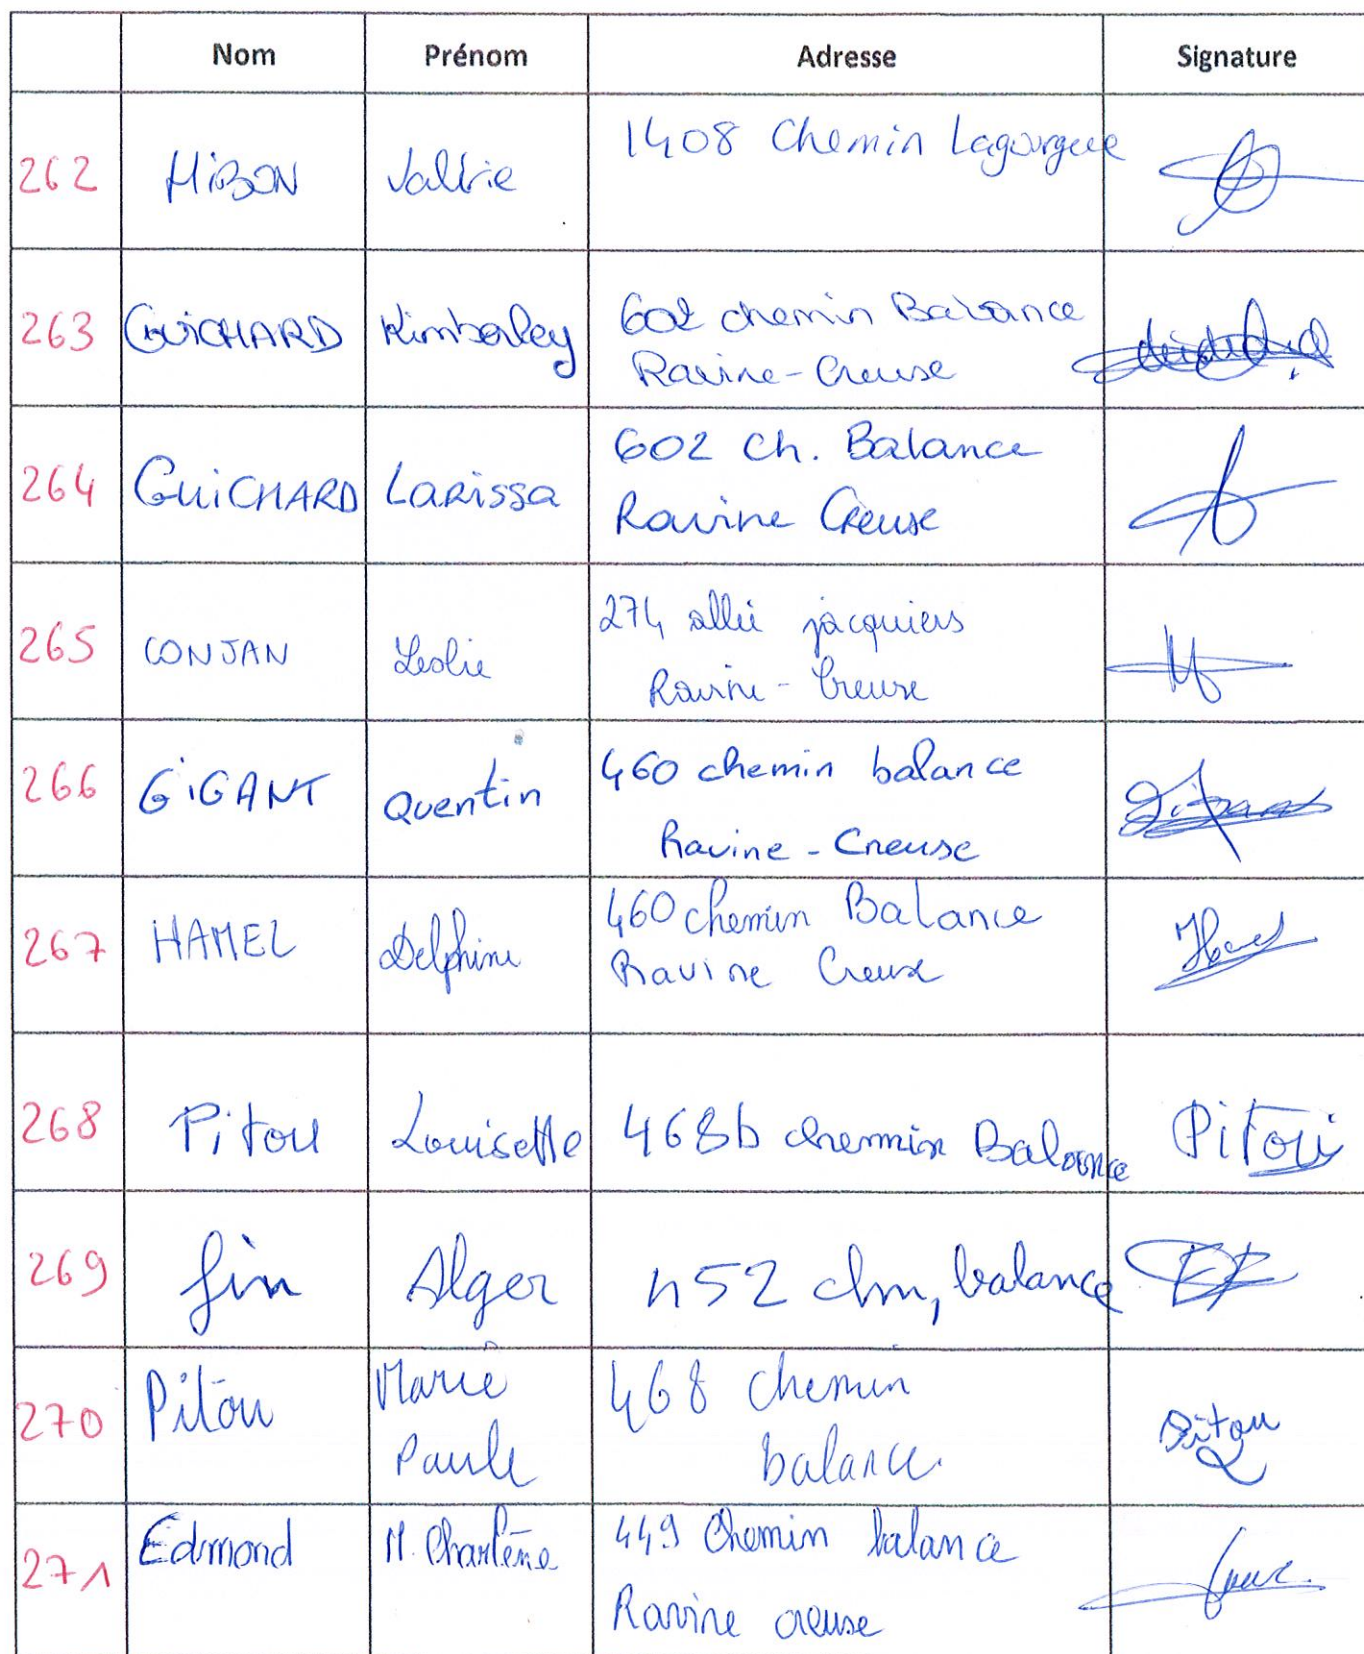 Nom Prénom Adresse Signature
262 HiBON Valérie 1408 Chemin Lagourgue
263 GUiCHARD Kimberley 602 chemin Balance
Ravine-Creuse
264 GuiCHARD LaRissa 602 Ch. Balance
Ravine Creuse
265 CONJAN Leslie 274 allée jacquiers
Ravine-Creuse
266 GiGANT Quentin 460 chemin balance
Ravine-Creuse
267 HAMEL Delphine 460 chemin Balance
Ravine Creuse
268 Pitou Louisette 468b chemin Balance Pitou
269 fin Alger 452 chm, balance
270 Pitou Marie 468 chemin
Paule balance. Pitou
271 Edmond M. Charlène 449 Chemin balance
Ravine creuse